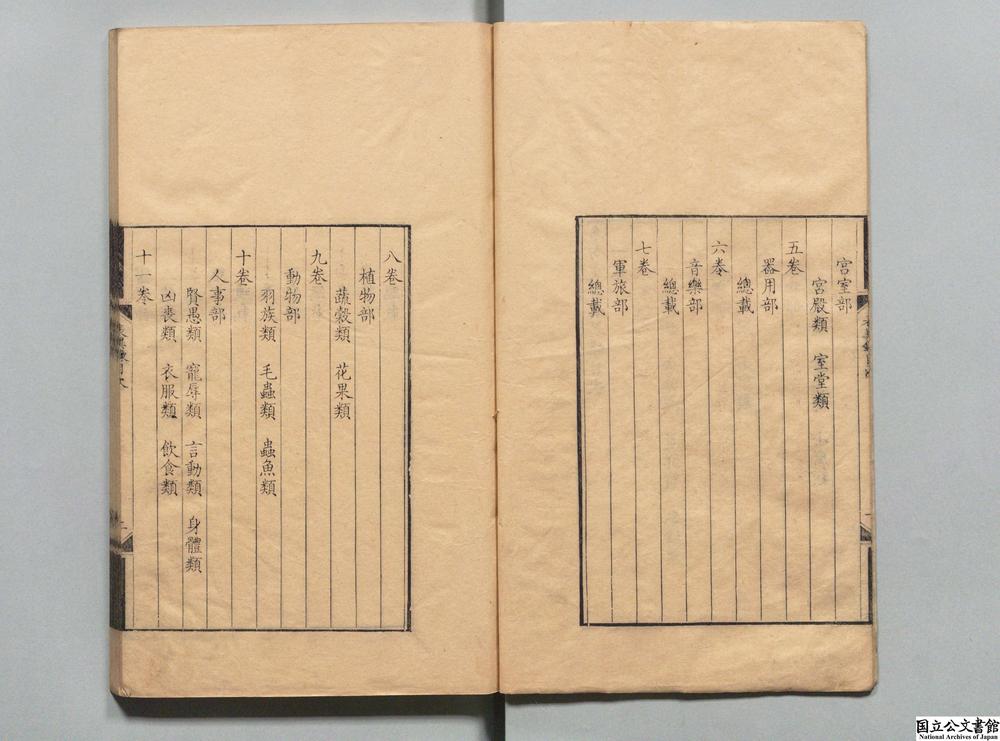 宮室部
宮殿類　室堂類
五卷
器用部
總載
六卷
音樂部
總載
七卷
軍旅部
總載
八卷
植物部
蔬穀類　花果類
九卷
動物部
羽族類　毛蟲類　蟲魚類
十卷
人事部
賢愚類　寵辱類　言動類　身體類
凶喪類　衣服類　飲食類
十一卷
国立公文書館
National Archives of Japan